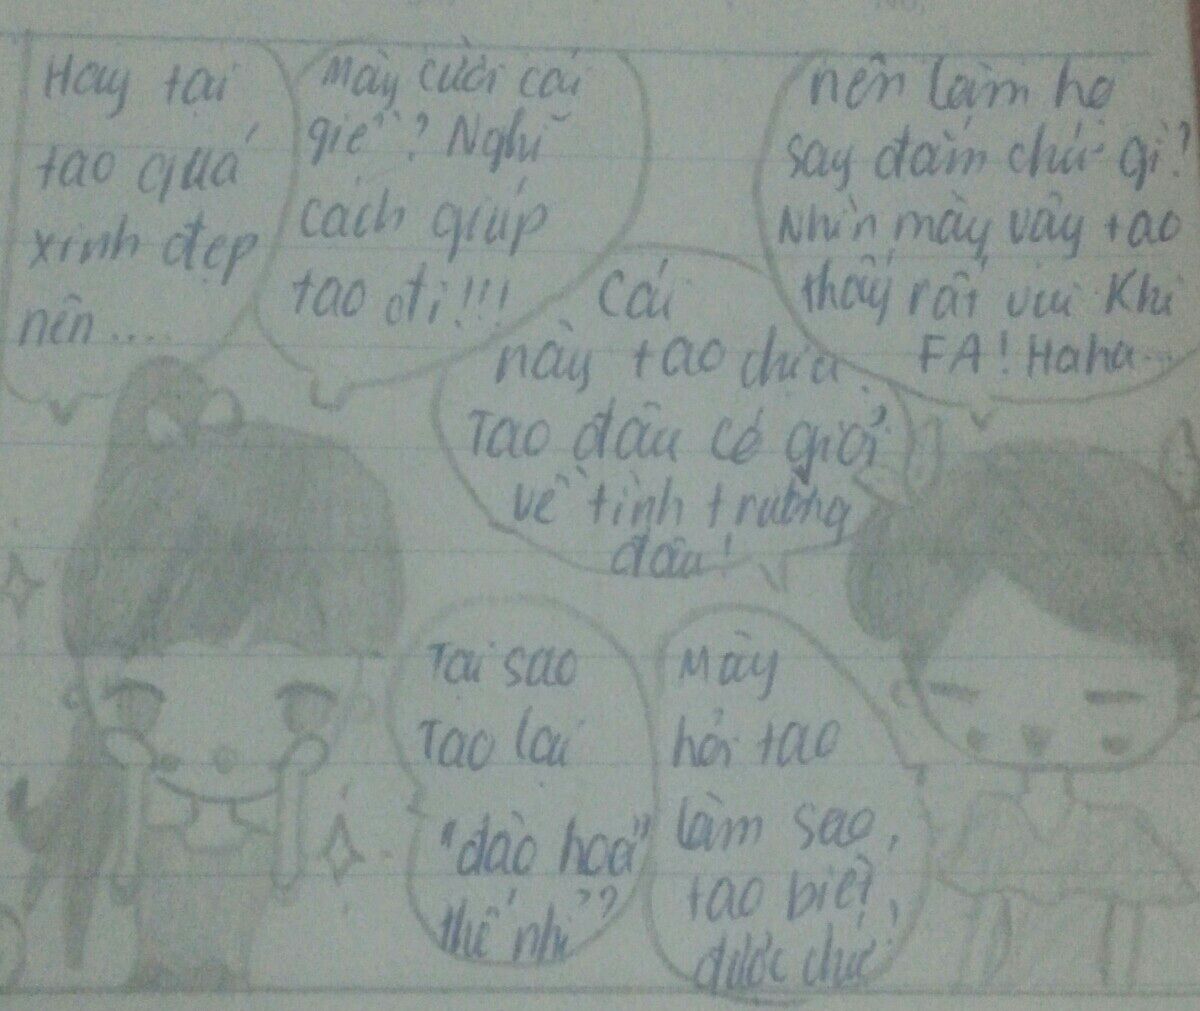 Hay tại
tao quá
xinh đẹp
nên....
Mày cười cái
giề? Nghĩ
cách giúp
tao đi!!!
Cái
này tao chịu.
Tao đâu có giỏi
về tình trường
đâu!
nên làm họ
say đắm chứ gì?
Nhìn mày vây tao
thấy rất vui khi
FA! Haha...
Tại sao
Tao lại
"đào hoa"
thế nhỉ??
Mày
hỏi tao
làm sao,
tao biết
được chứ!